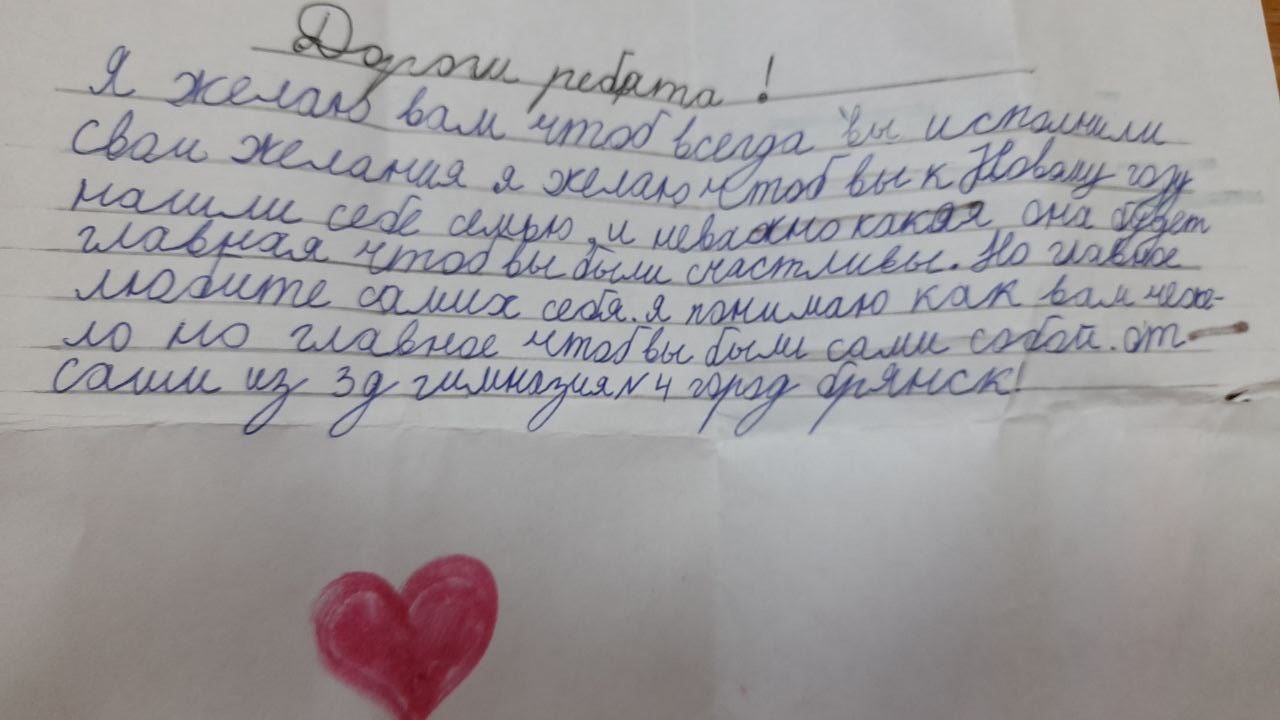 Дороги ребята!
Я желаю вам чтоб всегда вы исполнили
свои желания я желаю чтоб вы к Новаму году
нашли себе семью, и неважно какая она будет
главная чтоб вы были счастливы. Но главное
любите самих себя. я понимаю как вам
ло но главное чтоб вы были сами собой. от
саши из 3д гимназия №4 город брянск!